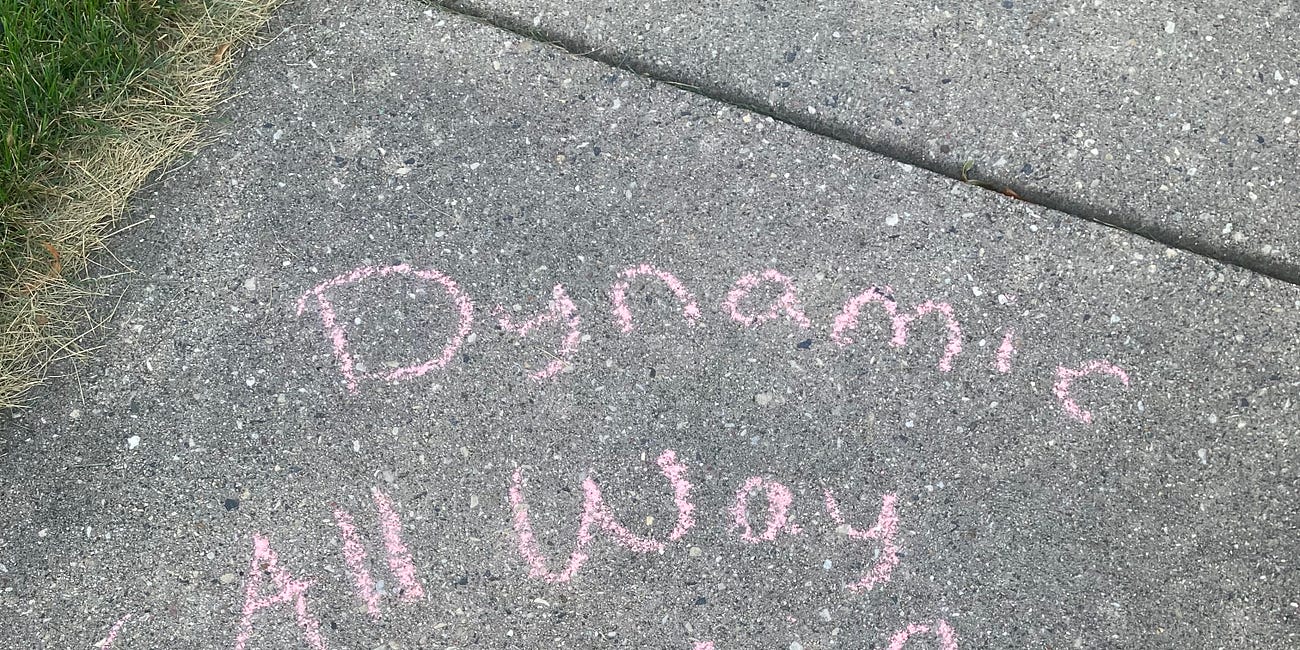 Dynamic
All Way